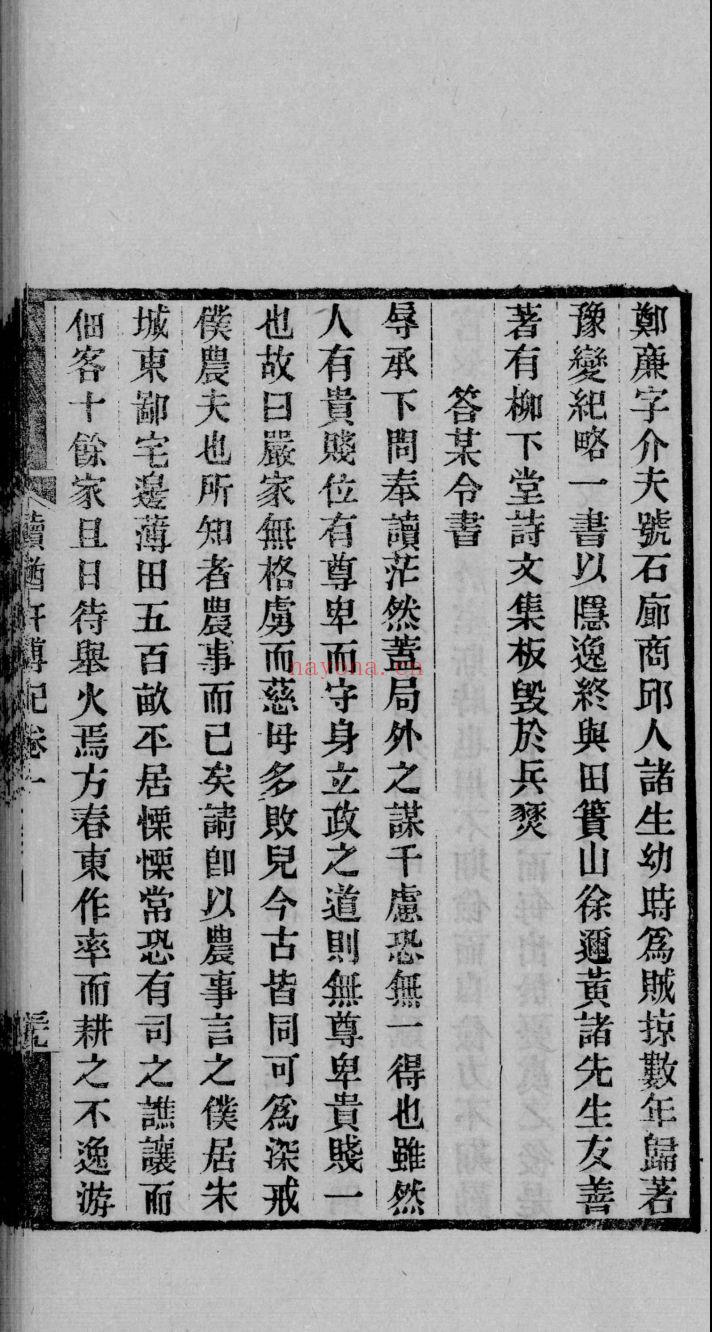 鄭廉字介夫號石廊商邱人諸生幼時爲賊掠數年歸著
豫變紀略一書以隱逸終與田簣山徐邇黃諸先生友善
著有柳下堂詩文集板毀於兵燹
答某令書
辱承下問奉讀茫然蓋局外之謀千慮恐無一得也雖然
人有貴賤位有尊卑而守身立政之道則無尊卑貴賤一
也故曰嚴家無格虜而慈母多敗兒今古皆同可爲深戒
僕農夫也所知者農事而已矣請卽以農事言之僕居宋
城東鄙宅邊薄田五百畝平居慄慄常恐有司之譙讓而
佃客十餘家且日待舉火焉方春東作率而耕之不逸游
卷一
hayona.cn